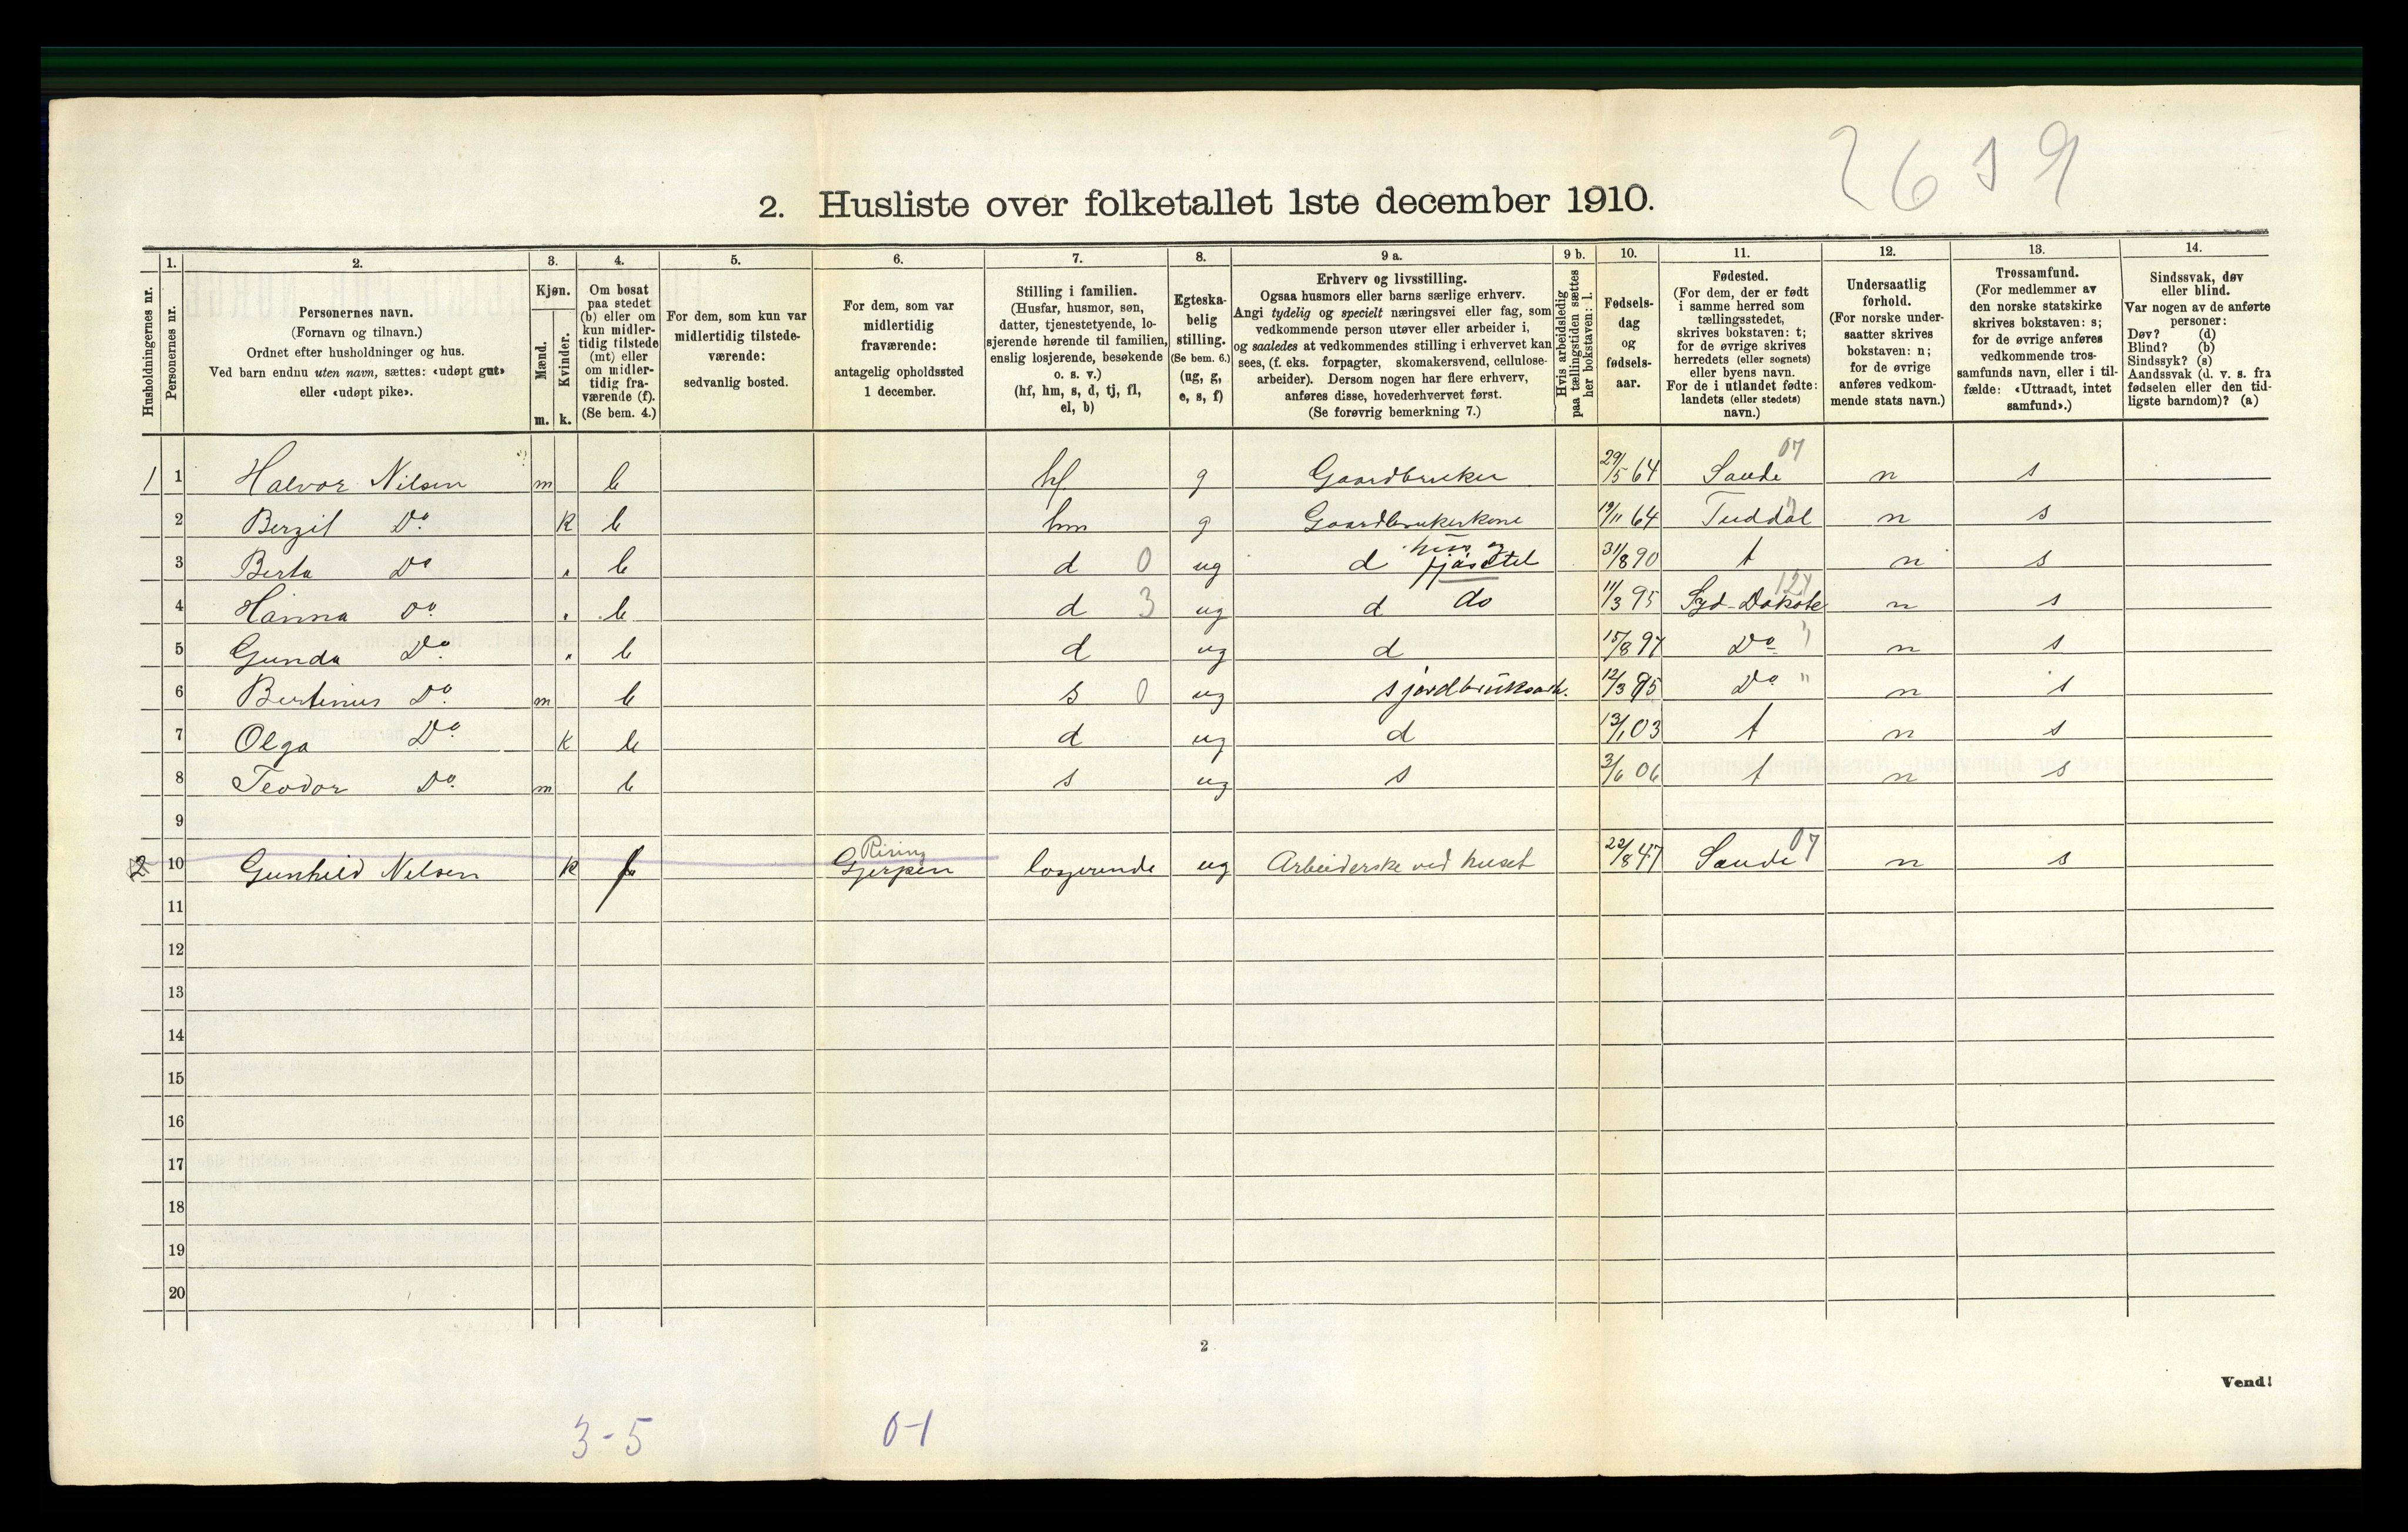 2619
2. Husliste over folketallet 1ste december 1910.
Husholdningernes nr.
1. Personernes nr.
2. Personernes navn.
(Fornavn og tilnavn.)
Ordnet efter husholdninger og hus.
Ved barn endnu uten navn, sættes: «udøpt gut»
eller «udøpt pike».
3. Kjøn.
Mænd. m.
Kvinder. k.
4. Om bosat
paa stedet
(b) eller om
kun midler-
tidig tilstede
(mt) eller
om midler-
tidig fra-
værende (f).
(Se bem. 4.)
5. For dem, som kun var
midlertidig tilstede-
værende:
sedvanlig bosted.
6. For dem, som var
midlertidig
fraværende:
antagelig opholdssted
1 december.
7. Stilling i familien.
(Husfar, husmor, søn,
datter, tjenestetyende, lo-
sjerende hørende til familien,
enslig losjerende, besøkende
o. s. v.)
(hf, hm, s, d, tj, fl,
el, b)
8. Egteska-
belig
stilling.
(Se bem. 6.)
(ug, g,
e, s, f)
9 a. Erhverv og livsstilling.
Ogsaa husmors eller barns særlige erhverv.
Angi tydelig og specielt næringsvei eller fag, som
vedkommende person utøver eller arbeider i,
og saaledes at vedkommendes stilling i erhvervet kan
sees, (f. eks. forpagter, skomakersvend, cellulose-
arbeider). Dersom nogen har flere erhverv,
anføres disse, hovederhvervet først.
(Se forøvrig bemerkning 7.)
9 b. Hvis arbeidsledig
paa tællingstiden sættes
her bokstaven: l.
10. Fødsels-
dag
og
fødsels-
aar.
11. Fødested.
(For dem, der er født
i samme herred som
tællingsstedet,
skrives bokstaven: t;
for de øvrige skrives
herredets (eller sognets)
eller byens navn.
For de i utlandet fødte:
landets (eller stedets)
navn.)
12. Undersaatlig
forhold.
(For norske under-
saatter skrives
bokstaven: n;
for de øvrige
anføres vedkom-
mende stats navn.)
13. Trossamfund.
(For medlemmer av
den norske statskirke
skrives bokstaven: s;
for de øvrige anføres
vedkommende tros-
samfunds navn, eller i til-
fælde: «Uttraadt, intet
samfund».)
14. Sindssvak, døv
eller blind.
Var nogen av de anførte
personer:
Døv? (d)
Blind? (b)
Sindssyk? (s)
Aandssvak (d. v. s. fra
fødselen eller den tid-
ligste barndom)? (a)
1 1 Halvor Nilsen m b hf g Gaardbruker 29/5 64 Saude 07 n s
2 Bergit Do k b hm g Gaardbrukerkone 19/11 64 Tuddal " n s
3 Berta Do " b d 0 ug d hus og fjøsstel 31/8 90 t n s
4 Hanna Do " b d 3 ug d do 11/3 95 Syd-Dakota 127 n s
5 Gunda Do " b d ug d 15/8 97 Do " n s
6 Bertinius Do m b s 0 ug s jordbruksarb. 12/3 95 Do " n s
7 Olga Do k b d ug d 13/1 03 t n s
8 Teodor Do m b s ug s 3/6 06 t n s
9
2 10 Gunhild Nilsen k f Rising Gjerpen losjerende ug Arbeiderske ved huset 22/8 47 Saude 07 n s
11
12
13
14
15
16
17
18
19
20
2
Vend!
3-5 0-1